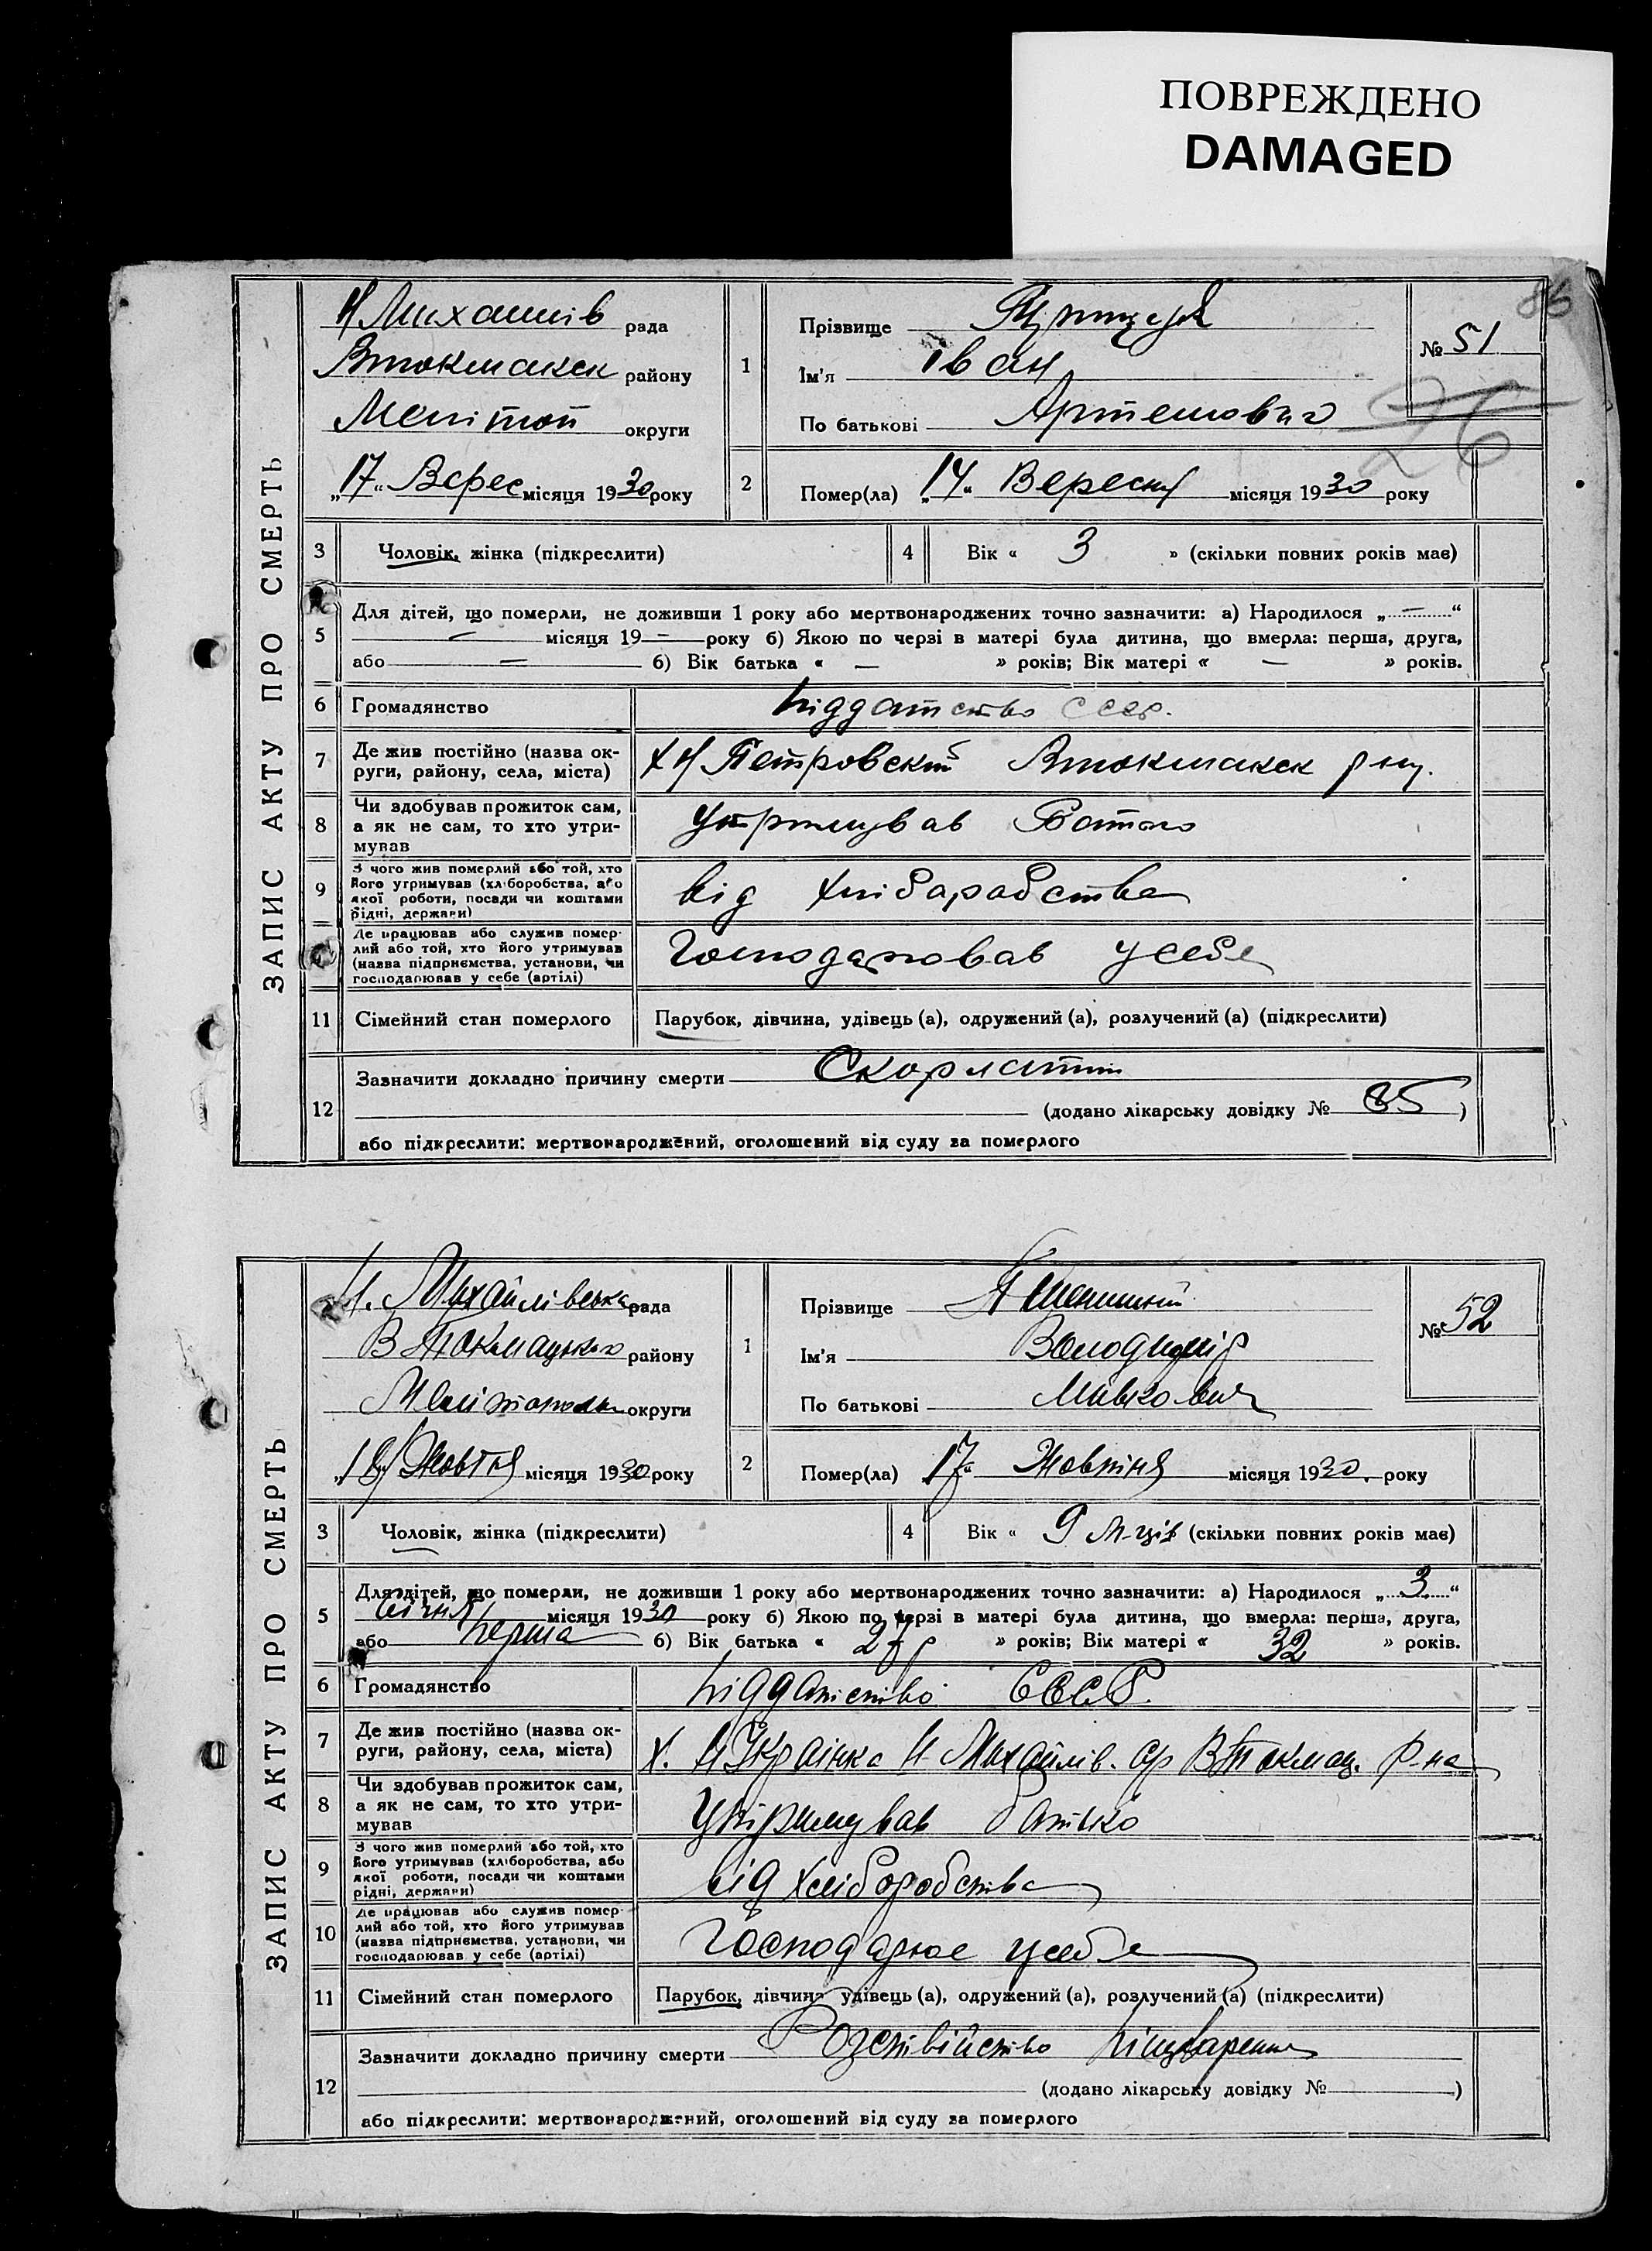 ПОВРЕЖДЕНО
DAMAGED
86
ЗАПИС АКТУ ПРО СМЕРТЬ
Н Михайлів рада
Втокмакск району
Мелітоп округи
„17“ Верес місяця 1930 року
1
Прізвище
Ім'я Іван
По батькові Артемович
№ 51
26
2 Помер(ла) „14“ Вересня місяця 1930 року
3 Чоловік, жінка (підкреслити)
4 Вік « 3 » (скільки повних років має)
5 Для дітей, що померли, не доживши 1 року або мертвонароджених точно зазначити: а) Народилося „ — “
— місяця 19 — року б) Якою по черзі в матері була дитина, що вмерла: перша, друга,
або — б) Вік батька « — » років; Вік матері « — » років.
6 Громадянство підданство СССР.
7 Де жив постійно (назва ок-
руги, району, села, міста)
Х Н Петровский Втокмакск р-ну.
8 Чи здобував прожиток сам,
а як не сам, то хто утри-
мував
Утримував Батько
9 З чого жив померлий або той, хто
його утримував (хліборобства, або
якої роботи, посади чи коштами
рідні, держави)
від хліборобства
Де працював або служив помер-
лий або той, хто його утримував
(назва підприємства, установи, чи
господарював у себе (артілі)
Господарював у себе
11 Сімейний стан померлого Парубок, дівчина, удівець (а), одружений (а), розлучений (а) (підкреслити)
12 Зазначити докладно причину смерти Скорлатин
(додано лікарську довідку № 85 )
або підкреслити: мертвонароджений, оголошений від суду за померлого
ЗАПИС АКТУ ПРО СМЕРТЬ
Н. Михайлівська рада
В Токмацького району
Мелітопольськ округи
„18“ Жовтня місяця 1930 року
1
Прізвище Пшеничний
Ім'я Володимир
По батькові
№ 52
2 Помер(ла) „17“ Жовтня місяця 1930. року
3 Чоловік, жінка (підкреслити)
4 Вік « 9 м-ців (скільки повних років має)
5 Для дітей, що померли, не доживши 1 року або мертвонароджених точно зазначити: а) Народилося „ 3 “
січня місяця 1930 року б) Якою по черзі в матері була дитина, що вмерла: перша, друга,
або перша б) Вік батька « » років; Вік матері « 32 » років.
6 Громадянство підданство СССР.
7 Де жив постійно (назва ок-
руги, району, села, міста)
х. Н Українка Н Михайлів. с/р ВТокмац. р-на
8 Чи здобував прожиток сам,
а як не сам, то хто утри-
мував
Утримував батько
9 З чого жив померлий або той, хто
його утримував (хліборобства, або
якої роботи, посади чи коштами
рідні, держави)
від хліборобства
10 Де працював або служив помер-
лий або той, хто його утримував
(назва підприємства, установи, чи
господарював у себе (артілі)
Господарює у себе
11 Сімейний стан померлого Парубок, дівчина удівець (а), одружений (а), розлучений (а) (підкреслити)
12 Зазначити докладно причину смерти
(додано лікарську довідку № )
або підкреслити: мертвонароджений, оголошений від суду за померлого